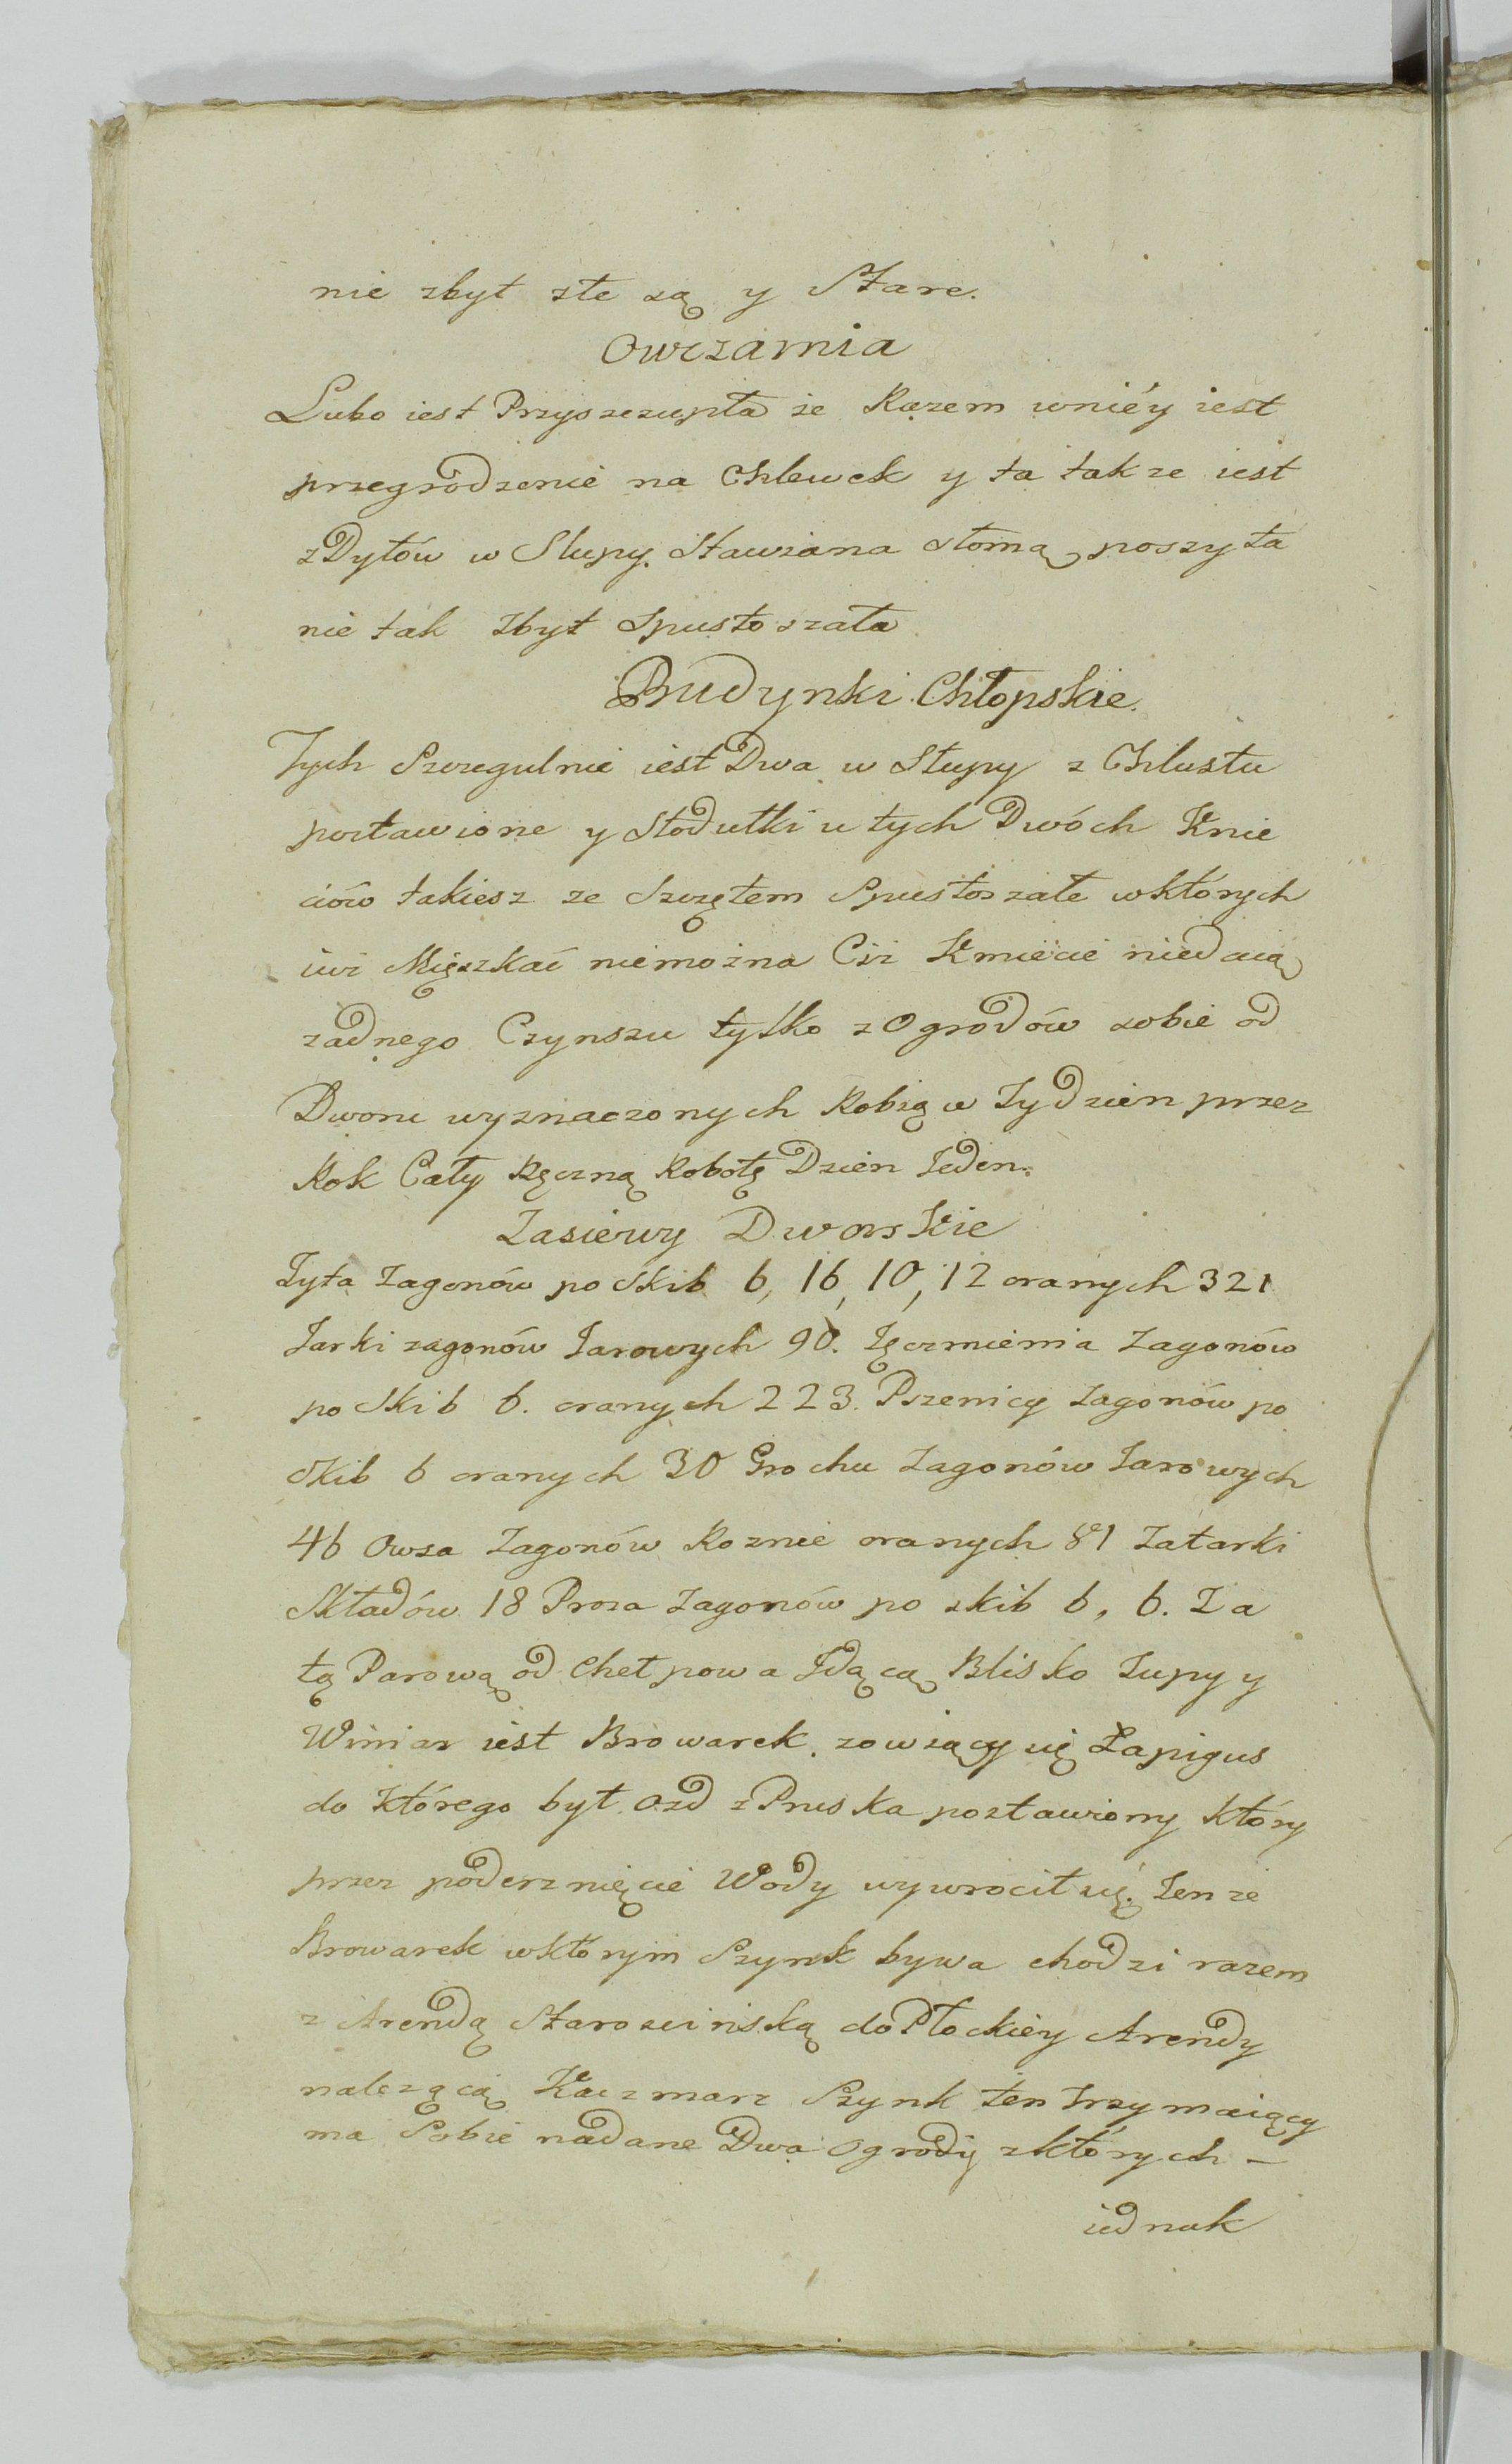 nie zbyt złe są y Stare.
Owczarnia
Lubo iest Przyszczupła że Razem wniéy iest
przegrodzenie na Chlewek y ta takze iest
z Dylów w Słupy. Stawiana słomą poszyta
nie tak zbyt spustoszała
Budynki Chłopskie.
Tych Szczegulnie iest Dwa w Słupy z Chlustu
postawione y stodułki u tych Dwóch Kmie
ciów takiesz ze Szczętem Spustoszałe w których
iuż Mięszkać niemożna Ciż Kmiecie niedaią
zadnego Czynszu tylko z Ogrodów sobie od
Dworu wyznaczonych Robią w Tydzien przez
Rok Cały Ręczną Robotę Dzien Jeden.
Zasiewy Dworskie
Żyta Zagonów po Skib 6, 16, 10, 12 oranych 321
Jarki zagonów Jarowych 90. Jęczmienia Zagonów
po Skib 6. oranych 223. Pszenicy Zagonów po
Skib 6 oranych 30 Grochu Zagonów Jarowych
46 Owsa Zagonów Roznie oranych 81 Tatarki
Składów 18 Prosa Zagonów po skib 6, 6. Za
tą Parową od Chełpowa Idącą Blisko Żupy y
Winiar iest Browarek zowiący się Łapigus
do którego był Ozd z Pruska postawiony który
przez poderznięcie Wody wywrócił się. Tenże
Browarek w którym Szynk bywa chodzi razem
z Arendą Starościńską do Płockiey Arendy
należącą Kaczmarz Szynk ten trzymaiący
ma Sobie nadane Dwa Ogrody z których –
iednak